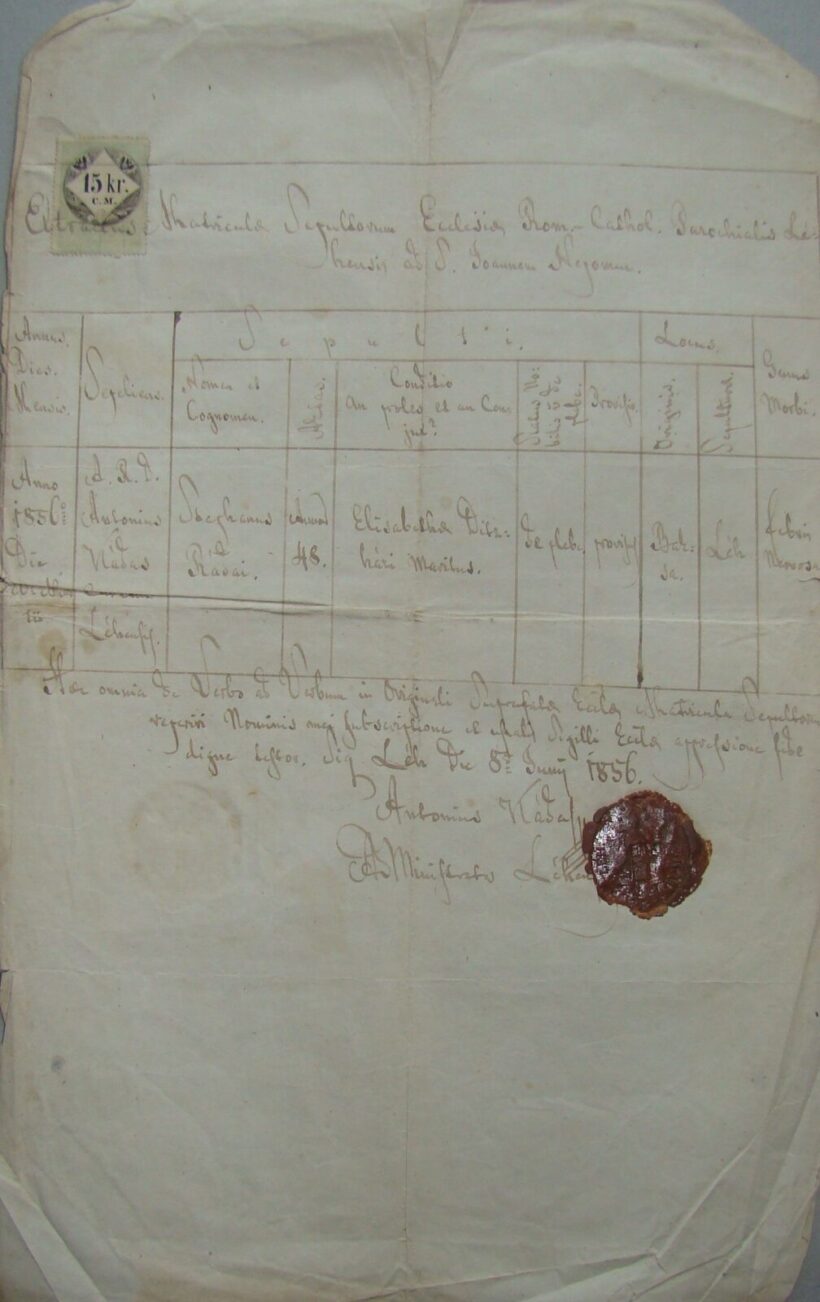 15 kr.
C. M.
Extractus Matriculæ Sepultorum Ecclesiæ Rom.- Cathol. Parochialis Lé-
hensis ad S. Joannem Nepomu.
Annus. Dies. Mensis.
Sepeliens.
Sepulti.
Nomen et Cognomen.
Aetas.
Conditio an proles et an Con-
jux?
Status No-
bilis v. de plebe.
Provisio.
Locus.
Originis.
Sepulturæ.
Genus Morbi.
Anno 1856
Die
A. R. D. Antonius Nádas
Léhensis.
Stephanus Rádai.
Annorum 48.
Elisabetha
Maritus.
de plebe.
Bak-
sa.
Léh
febris nervosa
Hæc omnia de Verbo ad Verbum in Originali Suprafatæ Eccla Matricula Sepultorum
reperiri Nominis mei subscriptione et Sigilli Eccla appressione fide
digne testor. Sig. Léh Die 8 Junij 1856.
Antonius Nádasy
Administrator